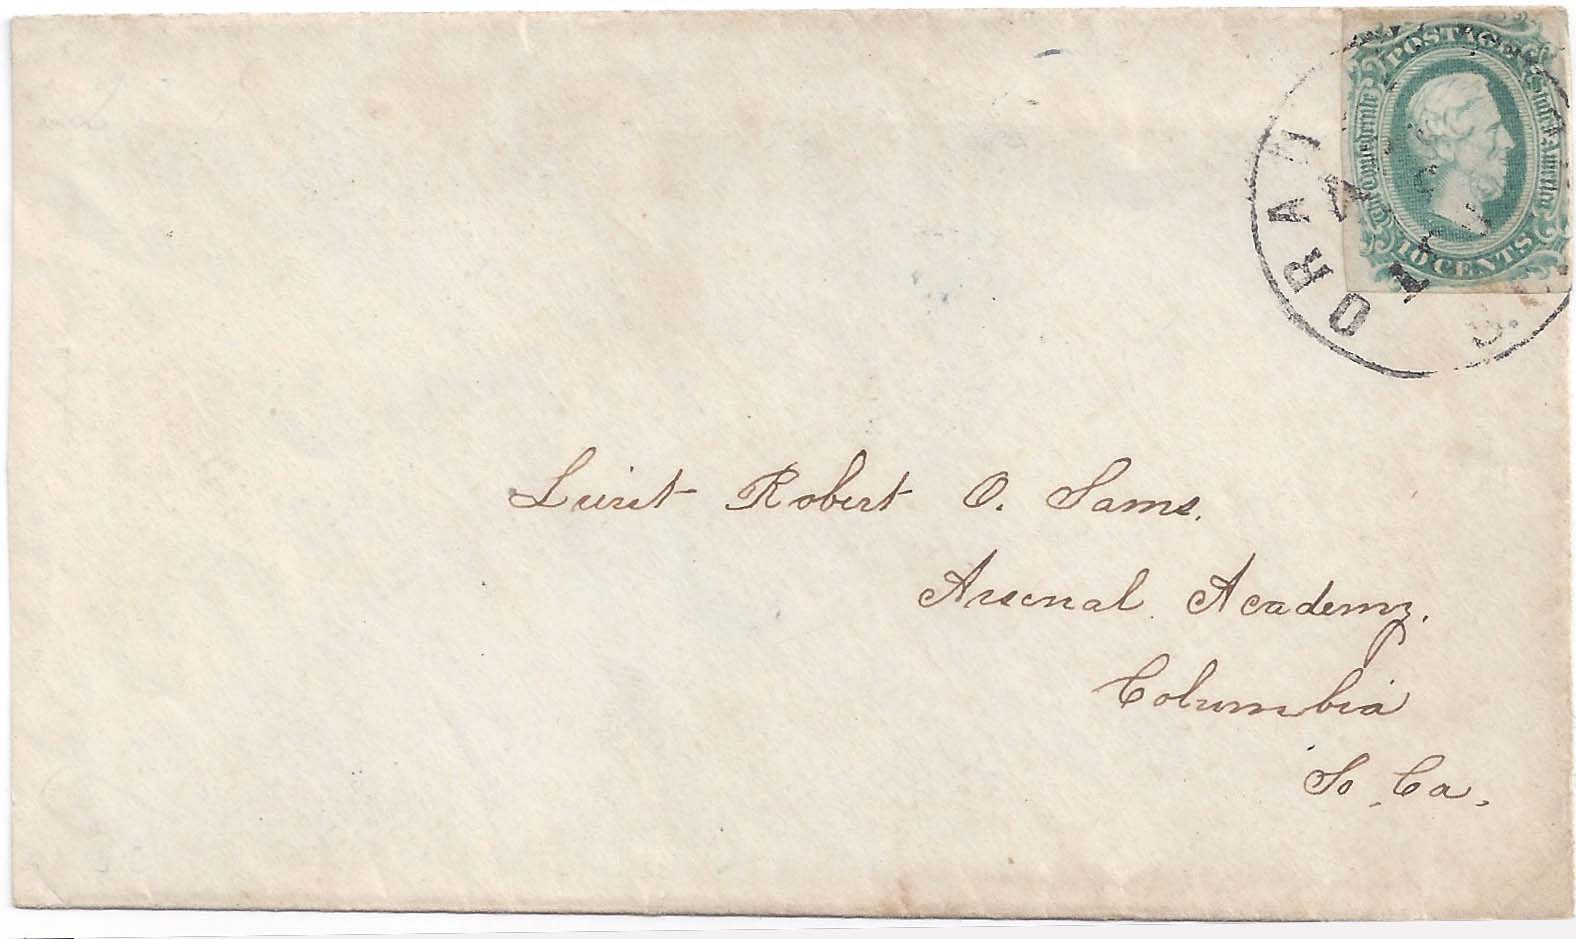 POSTAGE
Confederate States America
10 CENTS
Lieut Robert O. Sams.
Arsenal Academy.
Columbia
So. Ca.